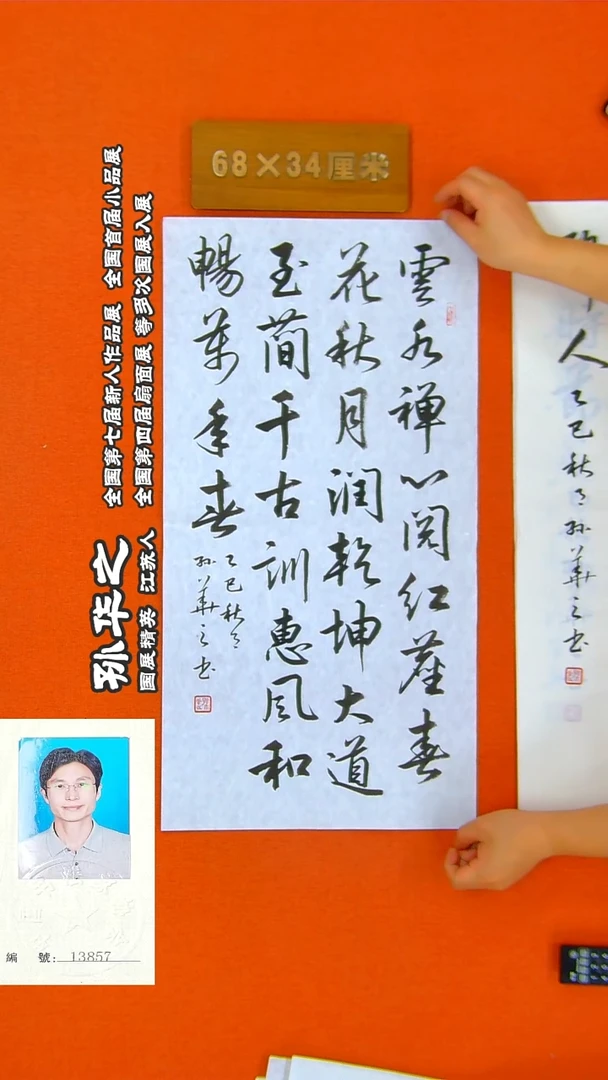 68×34厘米
雲水禅心阅红塵春
花秋月润乾坤大道
至简千古训惠风和
暢萬年春
乙巳秋月
孙華之书
人
乙巳秋月孙華之书
全国第七届新人作品展 全国首届小品展
全国第四届扇面展 等多次国展入展
孙华之
国展精英 江苏人
編 號: 13857